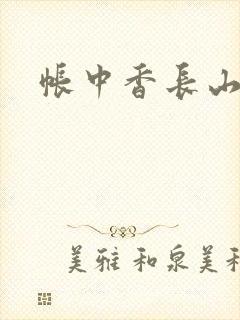 帐中香长山
美雅和泉美和